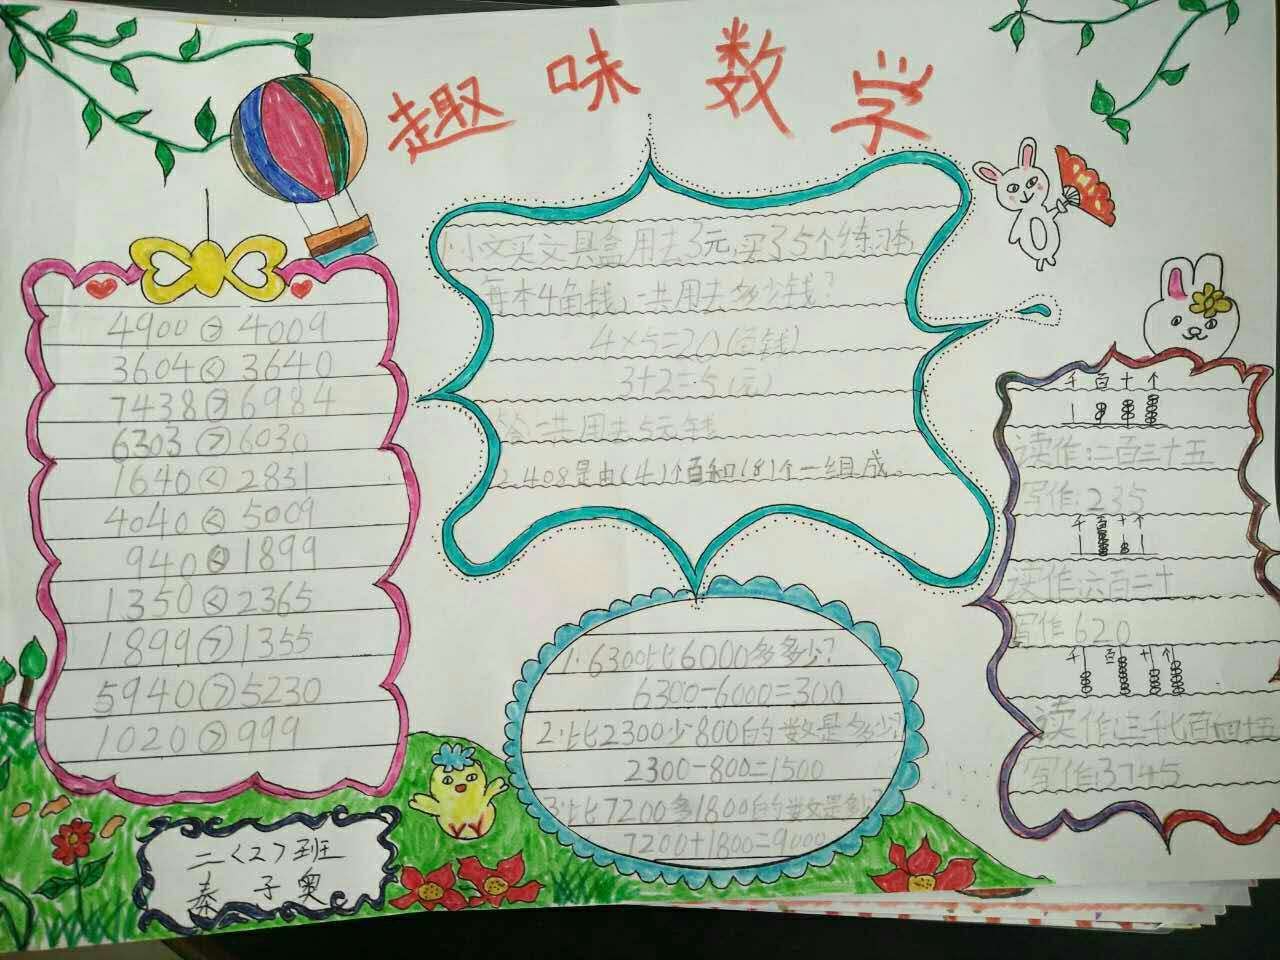 趣味数学
4900>4009
3604<3640
7438>6984
6303>6030
1640<2831
4040<5009
940<1899
1350<2365
1899>1355
5940>5230
1020>999
二〈2〉班
秦子奥
1.小文买文具盒用去3元,买了5个练习本,
每本4角钱,一共用去多少钱?
4×5=20(角钱)
3+2=5(元)
答:一共用去5元钱
2.408是由(4)个百和(8)个一组成。
1.6300比6000多多少?
6300-6000=300
2.比2300少800的数是多少?
2300-800=1500
3.比7200多1800的数是多少?
7200+1800=9000
千百十个
读作:二百三十五
写作:235
千百十个
读作:六百二十
写作:620
千百十个
读作:三千七百四十五
写作:3745